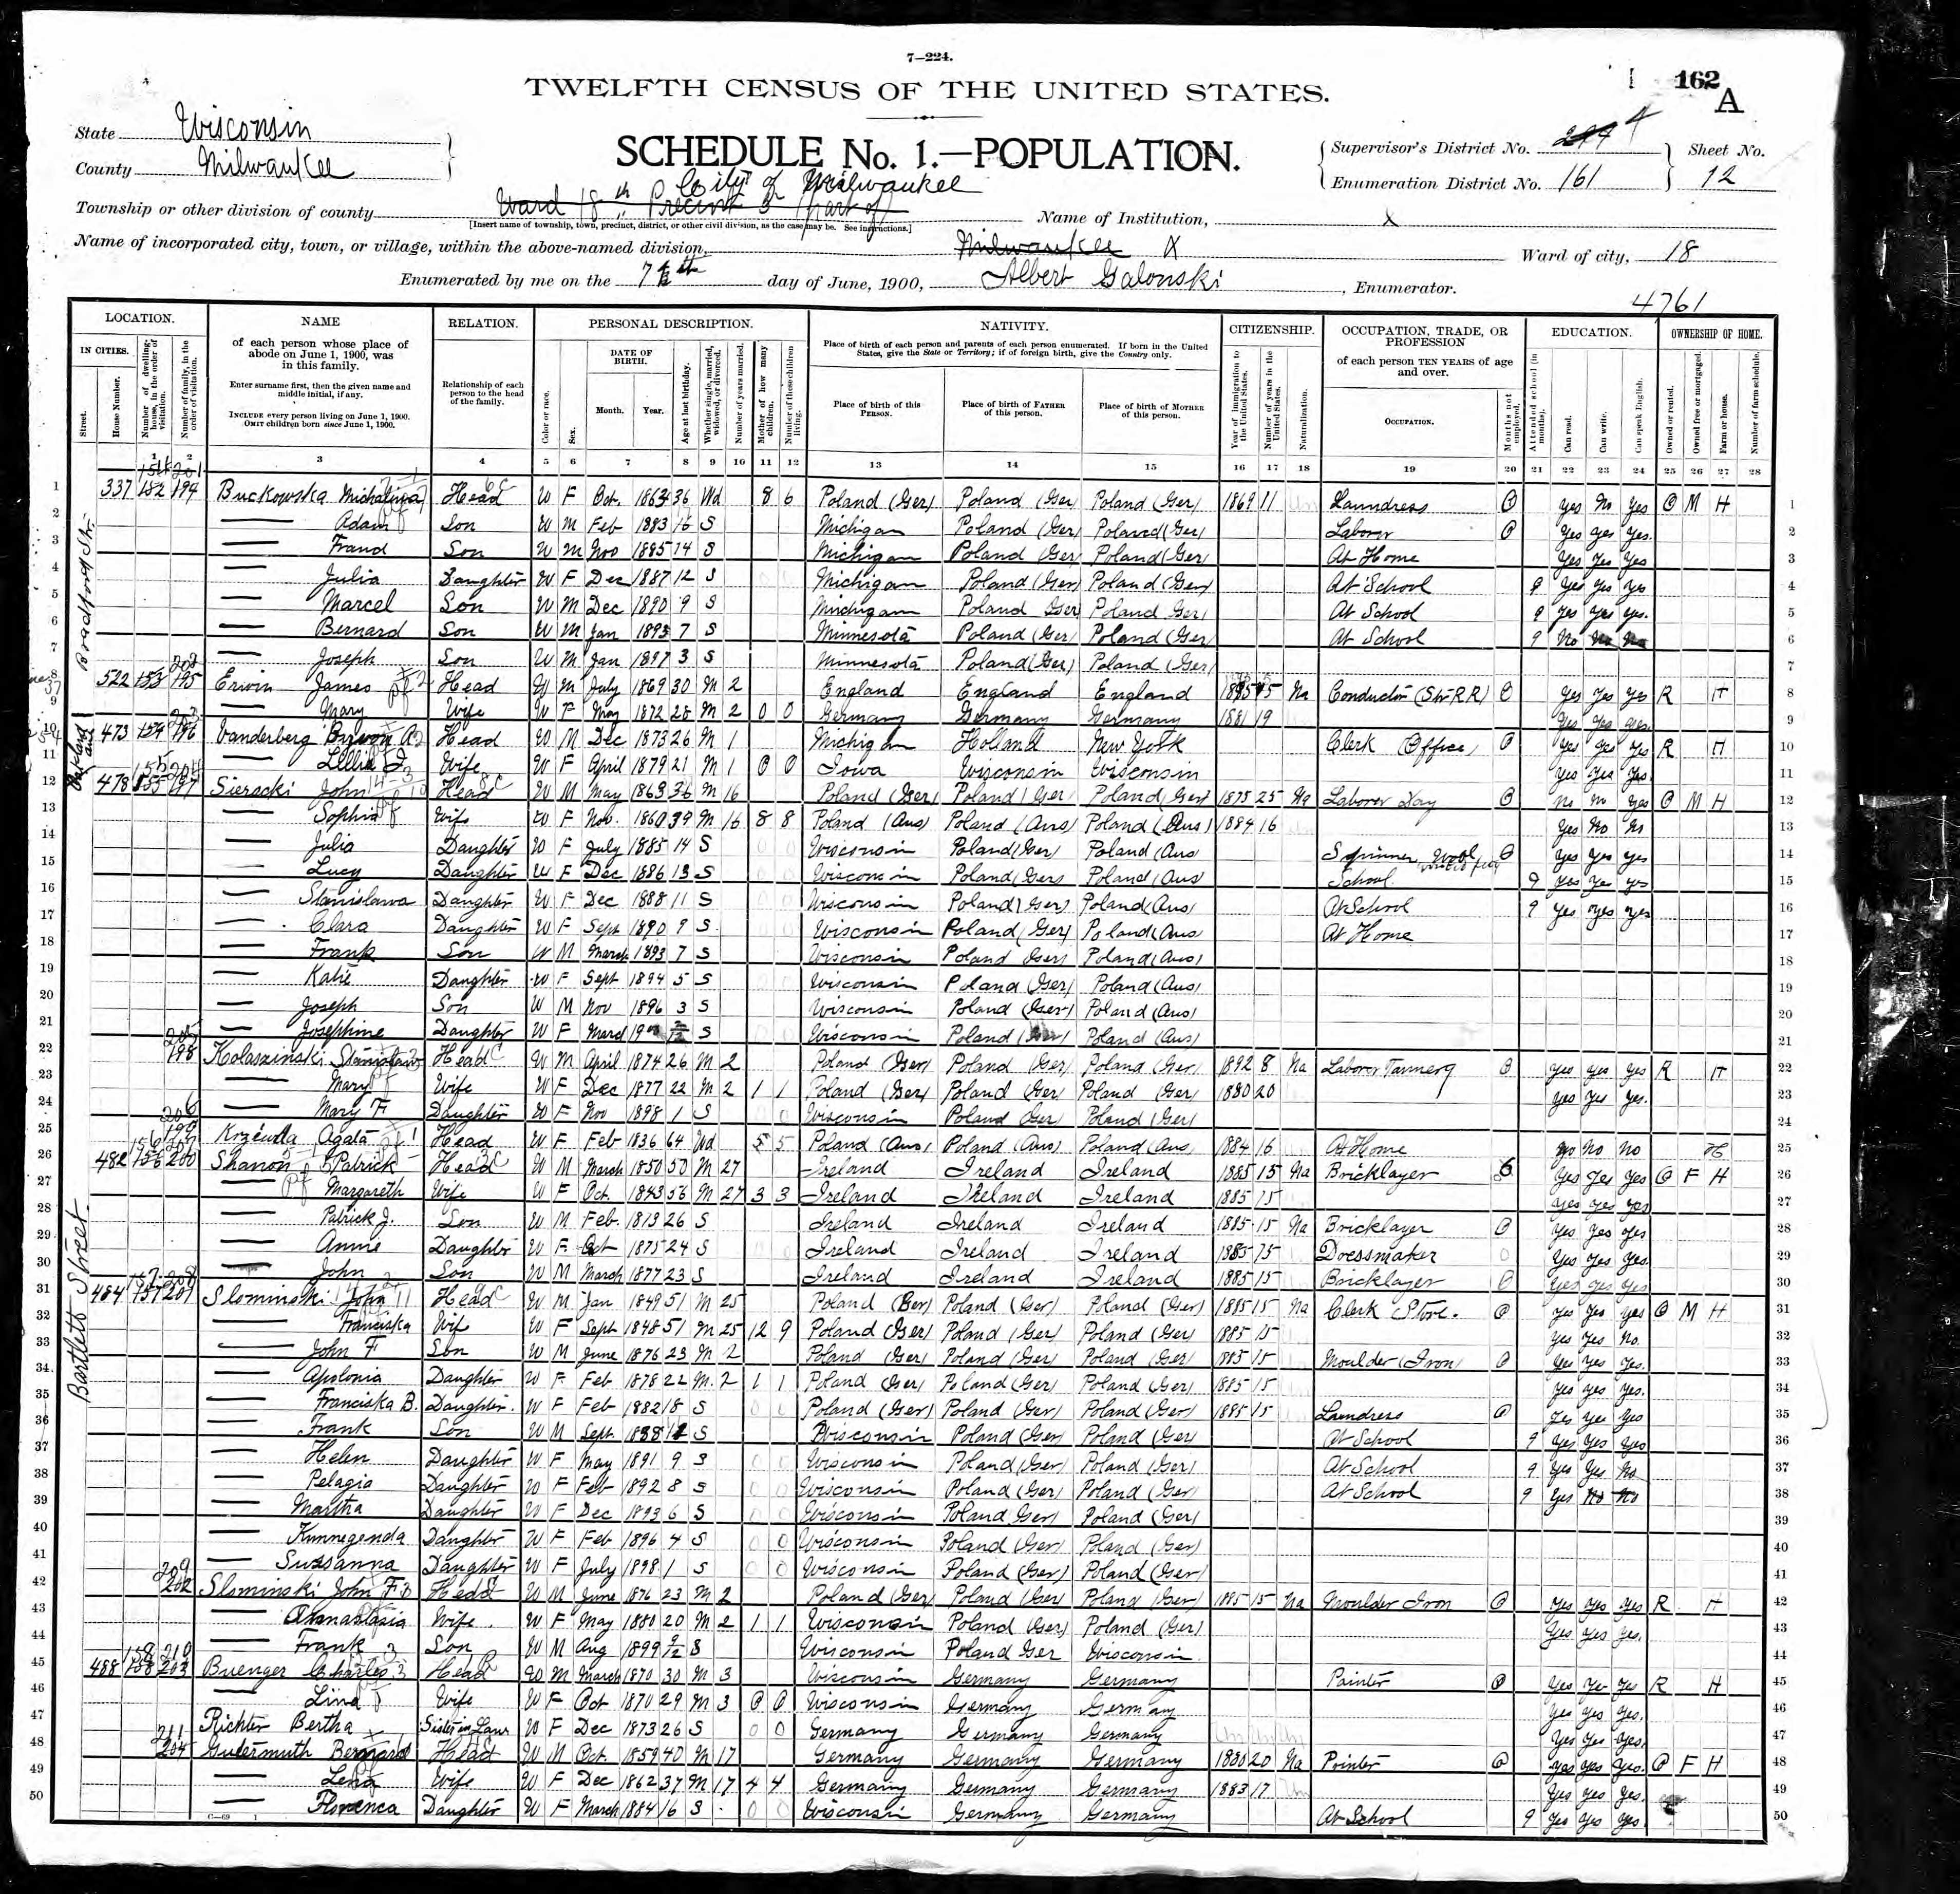 7—224.
162
A
TWELFTH CENSUS OF THE UNITED STATES.
State Wisconsin
County Milwaukee
SCHEDULE No. 1.—POPULATION.
Supervisor's District No. 4
Enumeration District No. 161
Sheet No. 12
City of Milwaukee
Township or other division of county Ward 18th Precinct 3 (part of)
[Insert name of township, town, precinct, district, or other civil division, as the case may be. See instructions.]
Name of Institution, X
Name of incorporated city, town, or village, within the above-named division, Milwaukee X
Ward of city, 18
Enumerated by me on the 7th day of June, 1900, Albert Galonski, Enumerator.
4761
LOCATION. NAME RELATION. PERSONAL DESCRIPTION. NATIVITY. CITIZENSHIP. OCCUPATION, TRADE, OR PROFESSION EDUCATION. OWNERSHIP OF HOME.
IN CITIES. Street. House Number. Number of dwelling-house, in the order of visitation. Number of family, in the order of visitation.
of each person whose place of abode on June 1, 1900, was in this family.
Enter surname first, then the given name and middle initial, if any.
INCLUDE every person living on June 1, 1900. OMIT children born since June 1, 1900.
Relationship of each person to the head of the family.
Color or race. Sex. DATE OF BIRTH. Month. Year. Age at last birthday. Whether single, married, widowed, or divorced. Number of years married. Mother of how many children. Number of these children living.
Place of birth of each person and parents of each person enumerated. If born in the United States, give the State or Territory; if of foreign birth, give the Country only.
Place of birth of this PERSON. Place of birth of FATHER of this person. Place of birth of MOTHER of this person.
Year of immigration to the United States. Number of years in the United States. Naturalization.
of each person TEN YEARS of age and over.
OCCUPATION. Months not employed.
Attended school (in months). Can read. Can write. Can speak English. Owned or rented. Owned free or mortgaged. Farm or house. Number of farm schedule.
1 2 3 4 5 6 7 8 9 10 11 12 13 14 15 16 17 18 19 20 21 22 23 24 25 26 27 28
Bradford Str.
1 337 152 194 Buckowska Michalina Head W F Oct. 1863 36 Wd 8 6 Poland (Ger) Poland (Ger) Poland (Ger) 11 Laundress 0 Yes No Yes O M H 1
2 Adam Son W M Feb 1883 16 S Michigan Poland (Ger) Poland (Ger) Laborer 0 Yes Yes Yes 2
3 Frand Son W M Nov 1885 14 S Michigan Poland (Ger) Poland (Ger) At Home Yes Yes Yes 3
4 Julia Daughter W F Dec 1887 12 S Michigan Poland (Ger) Poland (Ger) At School 9 Yes Yes Yes 4
5 Marcel Son W M Dec 1890 9 S Michigan Poland Ger Poland Ger At School 9 Yes Yes Yes 5
6 Bernard Son W M Jan 1893 7 S Minnesota Poland (Ger) Poland (Ger) At School 9 No No No 6
7 Joseph Son W M Jan 1897 3 S Minnesota Poland (Ger) Poland (Ger) 7
8 522 153 195 Erwin James Head W M July 1869 30 M 2 England England England Na Conductor (Str RR) 0 Yes Yes Yes R H 8
9 Mary Wife W F May 1872 28 M 2 0 0 Germany Germany Germany 1881 19 Yes Yes Yes 9
Oakland ave
10 473 154 196 Vanderberg Head W M Dec 1873 26 M 1 Michigan Holland New York Clerk (Office) 0 Yes Yes Yes R H 10
11 Wife W F April 1879 21 M 1 0 0 Iowa Wisconsin Wisconsin Yes Yes Yes 11
12 478 155 197 Sieracki John Head W M May 1863 36 M 16 Poland (Ger) Poland (Ger) Poland (Ger) 1875 25 Na Laborer Day 0 No No Yes O M H 12
13 Sophia Wife W F Nov. 1860 39 M 16 8 8 Poland (Aus) Poland (Aus) Poland (Aus) 1884 16 Yes No No 13
14 Julia Daughter W F July 1885 14 S Wisconsin Poland (Ger) Poland (Aus) Spinner Wool 0 Yes Yes Yes 14
15 Lucy Daughter W F Dec 1886 13 S Wisconsin Poland (Ger) Poland (Aus) School 9 Yes Yes Yes 15
16 Stanislawa Daughter W F Dec 1888 11 S Wisconsin Poland (Ger) Poland (Aus) At School 9 Yes Yes Yes 16
17 Clara Daughter W F Sept 1890 9 S Wisconsin Poland (Ger) Poland (Aus) At Home 17
18 Frank Son W M March 1893 7 S Wisconsin Poland (Ger) Poland (Aus) 18
19 Katie Daughter W F Sept 1894 5 S Wisconsin Poland (Ger) Poland (Aus) 19
20 Joseph Son W M Nov 1896 3 S Wisconsin Poland (Ger) Poland (Aus) 20
21 Josephine Daughter W F S Wisconsin Poland (Ger) Poland (Aus) 21
22 198 Kolaszinski Stanislaw Head W M April 1874 26 M 2 Poland (Ger) Poland (Ger) Poland (Ger) 1892 8 Na Laborer Tannery 0 Yes Yes Yes R H 22
23 Mary Wife W F Dec 1877 22 M 2 1 1 Poland (Ger) Poland (Ger) Poland (Ger) 1880 20 Yes Yes Yes 23
24 Mary F Daughter W F Nov 1898 1 S 0 Wisconsin Poland Ger Poland (Ger) 24
Bartlett Street.
25 199 Agata Head W F Feb 1836 64 Wd 5 5 Poland (Aus) Poland (Aus) Poland (Aus) 1884 16 At Home No No No H 25
26 482 156 200 Shanon Patrick Head W M March 1850 50 M 27 Ireland Ireland Ireland 1885 15 Na Bricklayer 6 Yes Yes Yes O F H 26
27 Margareth Wife W F Oct. 1843 56 M 27 3 3 Ireland Ireland Ireland 1885 15 Yes Yes Yes 27
28 Patrick J. Son W M Feb. 26 S Ireland Ireland Ireland 1885 15 Na Bricklayer 0 Yes Yes Yes 28
29 Annie Daughter W F Oct 1875 24 S Ireland Ireland Ireland 1885 15 Dressmaker 0 Yes Yes Yes 29
30 John Son W M March 1877 23 S Ireland Ireland Ireland 1885 15 Bricklayer 0 Yes Yes Yes 30
31 484 157 201 Slominski John Head W M Jan 1849 51 M 25 Poland (Ger) Poland (Ger) Poland (Ger) 1885 15 Na Clerk Store. 0 Yes Yes Yes O M H 31
32 Franciska Wif W F Sept 1848 51 M 25 12 9 Poland (Ger) Poland (Ger) Poland (Ger) 1885 15 Yes Yes No. 32
33 John F Son W M June 1876 23 M 2 Poland (Ger) Poland (Ger) Poland (Ger) 1885 15 Moulder (Iron) 0 Yes Yes Yes. 33
34 Apolonia Daughter W F Feb 1878 22 M 2 1 1 Poland (Ger) Poland (Ger) Poland (Ger) 1885 15 Yes Yes Yes. 34
35 Franciska B. Daughter W F Feb 1882 18 S Poland (Ger) Poland (Ger) Poland (Ger) 1885 15 Laundress 0 Yes Yes Yes 35
36 Frank Son W M Sept S Wisconsin Poland (Ger) Poland (Ger) At School 9 Yes Yes Yes 36
37 Helen Daughter W F May 1891 9 S Wisconsin Poland (Ger) Poland (Ger) At School 9 Yes Yes No 37
38 Pelagia Daughter W F Feb 1892 8 S Wisconsin Poland (Ger) Poland (Ger) At School 9 Yes No No 38
39 Martha Daughter W F Dec 1893 6 S Wisconsin Poland Ger) Poland (Ger) 39
40 Kunnegenda Daughter W F Feb 1896 4 S 0 0 Wisconsin Poland (Ger) Poland (Ger) 40
41 Suzsanna Daughter W F July 1898 1 S 0 0 Wisconsin Poland (Ger) Poland (Ger) 41
42 202 Slominski John F Head W M June 1876 23 M 2 Poland (Ger) Poland (Ger) Poland (Ger) 1885 15 Na Moulder Iron 0 Yes Yes Yes R H 42
43 Anastasia Wife W F May 1880 20 M 2 1 1 Wisconsin Poland (Ger) Poland (Ger) Yes Yes Yes. 43
44 Frank Son W M Aug 1899 9/12 S Wisconsin Poland Ger Wisconsin 44
45 488 158 203 Buenger Charles Head W M March 1870 30 M 3 Wisconsin Germany Germany Painter 0 Yes Yes Yes R H 45
46 Lina Wife W F Oct 1870 29 M 3 0 0 Wisconsin Germany Germany Yes Yes Yes. 46
47 Richter Bertha Sister in Law W F Dec 1873 26 S 0 0 Germany Germany Germany Yes Yes Yes. 47
48 204 Gutermuth Bernard Head W M Oct. 1859 40 M 17 Germany Germany Germany 1880 20 Na 0 Yes Yes Yes. O F H 48
49 Lena Wife W F Dec 1862 37 M 17 4 4 Germany Germany Germany 1883 17 Yes Yes Yes. 49
50 Florenca Daughter W F March 1884 16 S 0 0 Wisconsin Germany Germany At School 9 Yes Yes Yes 50
C—69 1